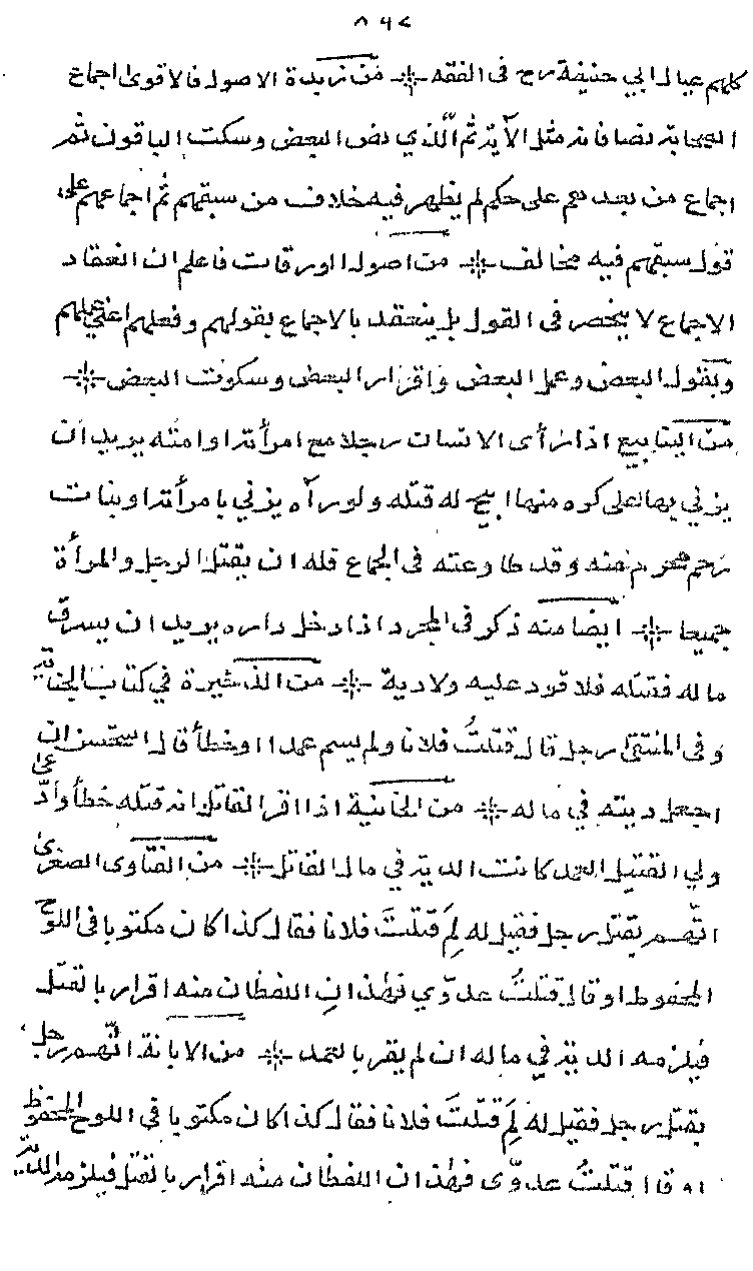 ٨٦٧
كلهم عيال ابي حنيفة رح في الفقه ⁜ من زبدة الاصول فالاقوى اجماع
الصحابة نصا فانه مثل الآية ثم الّذي نص البعض وسكت الباقون ثم
اجماع من بعدهم على حكم لم يظهر فيه خلاف من سبقهم ثم اجماعهم على
قول سبقهم فيه مخالف ⁜ من اصول فاعلم ان انعقاد
الاجماع لا ينحصر في القول بل ينعقد بالاجماع بقولهم وفعلهم اعني عملهم
وبقول البعض وعمل البعض واقرار البعض وسكوت البعض ⁜
من الينابيع اذا رأى الانسان رجلا مع امرأته او امته يريد ان
يزني بها على كره منها ابيح له قتله ولو رآه يزني بامرأته او بنات
رحم محرم منه وقد طاوعته في الجماع فله ان يقتل الرجل والمرأة
جميعا ⁜ ايضا منه ذكر في المجرد اذا دخل داره يريد ان يسرق
ماله فقتله فلا قود عليه ولا دية ⁜ من الذخيرة في كتاب الجناية
وفي المنتقى رجل قال قتلتُ فلانا ولم يسم عمدا او خطأ قال استحسن ان
اجعل ديته في ماله ⁜ من الخانية اذا اقر القاتل انه قتله خطأ وادّعى
ولي القتيل العمد كانت الدية في مال القاتل ⁜ من الفتاوى الصغرى
اتّهم بقتل رجل فقيل له لِمَ قتلتَ فلانا فقال كذا كان مكتوبا في اللوح
المحفوظ او قال قتلتُ عدوّي فهذان اللفظان منه اقرار بالقتل
فيلزمه الدية في ماله ان لم يقر بالعمد ⁜ من الابانة اتّهم رجل
بقتل رجل فقيل له لِمَ قتلتَ فلانا فقال كذا كان مكتوبا في اللوح المحفوظ
او قال قتلتُ عدوّي فهذان اللفظان منه اقرار بالقتل فيلزمه الدية